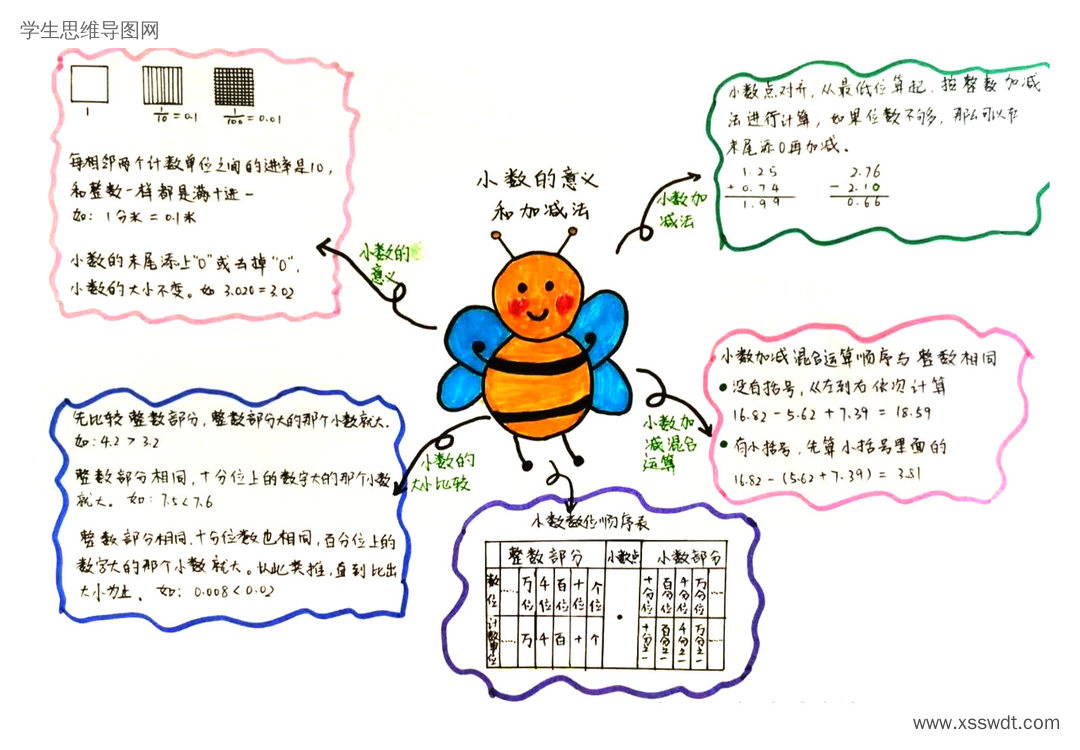 学生思维导图网
小数的意义
和加减法
1
1/10 = 0.1
1/100 = 0.01
每相邻两个计数单位之间的进率是10,
和整数一样都是满十进一
如: 1分米 = 0.1米
小数的末尾添上"0"或去掉"0",
小数的大小不变。如 3.020 = 3.02
小数的
意义
小数点对齐, 从最低位算起, 按整数加减
法进行计算, 如果位数不够, 那么可以在
末尾添0再加减。
1.25
+ 0.74
1.99
2.76
- 2.10
0.66
小数加
减法
小数加减混合运算顺序与整数相同
没有括号, 从左到右依次计算
16.82 - 5.62 + 7.39 = 18.59
有小括号, 先算小括号里面的
16.82 - (5.62 + 7.39) = 3.81
小数加
减混合
运算
先比较整数部分, 整数部分大的那个小数就大.
如: 4.2 > 3.2
整数部分相同, 十分位上的数字大的那个小数
就大。 如: 7.5 < 7.6
整数部分相同, 十分位数也相同, 百分位上的
数字大的那个小数就大。以此类推, 直到比出
大小为止。 如: 0.008 < 0.02
小数的
大小比较
小数数位顺序表
整数部分 小数点 小数部分
数位 …… 万位 千位 百位 十位 个位 • 十分位 百分位 千分位 万分位 ……
计数单位 …… 万 千 百 十 个 十分之一 百分之一 千分之一 万分之一 ……
www.xsswdt.com